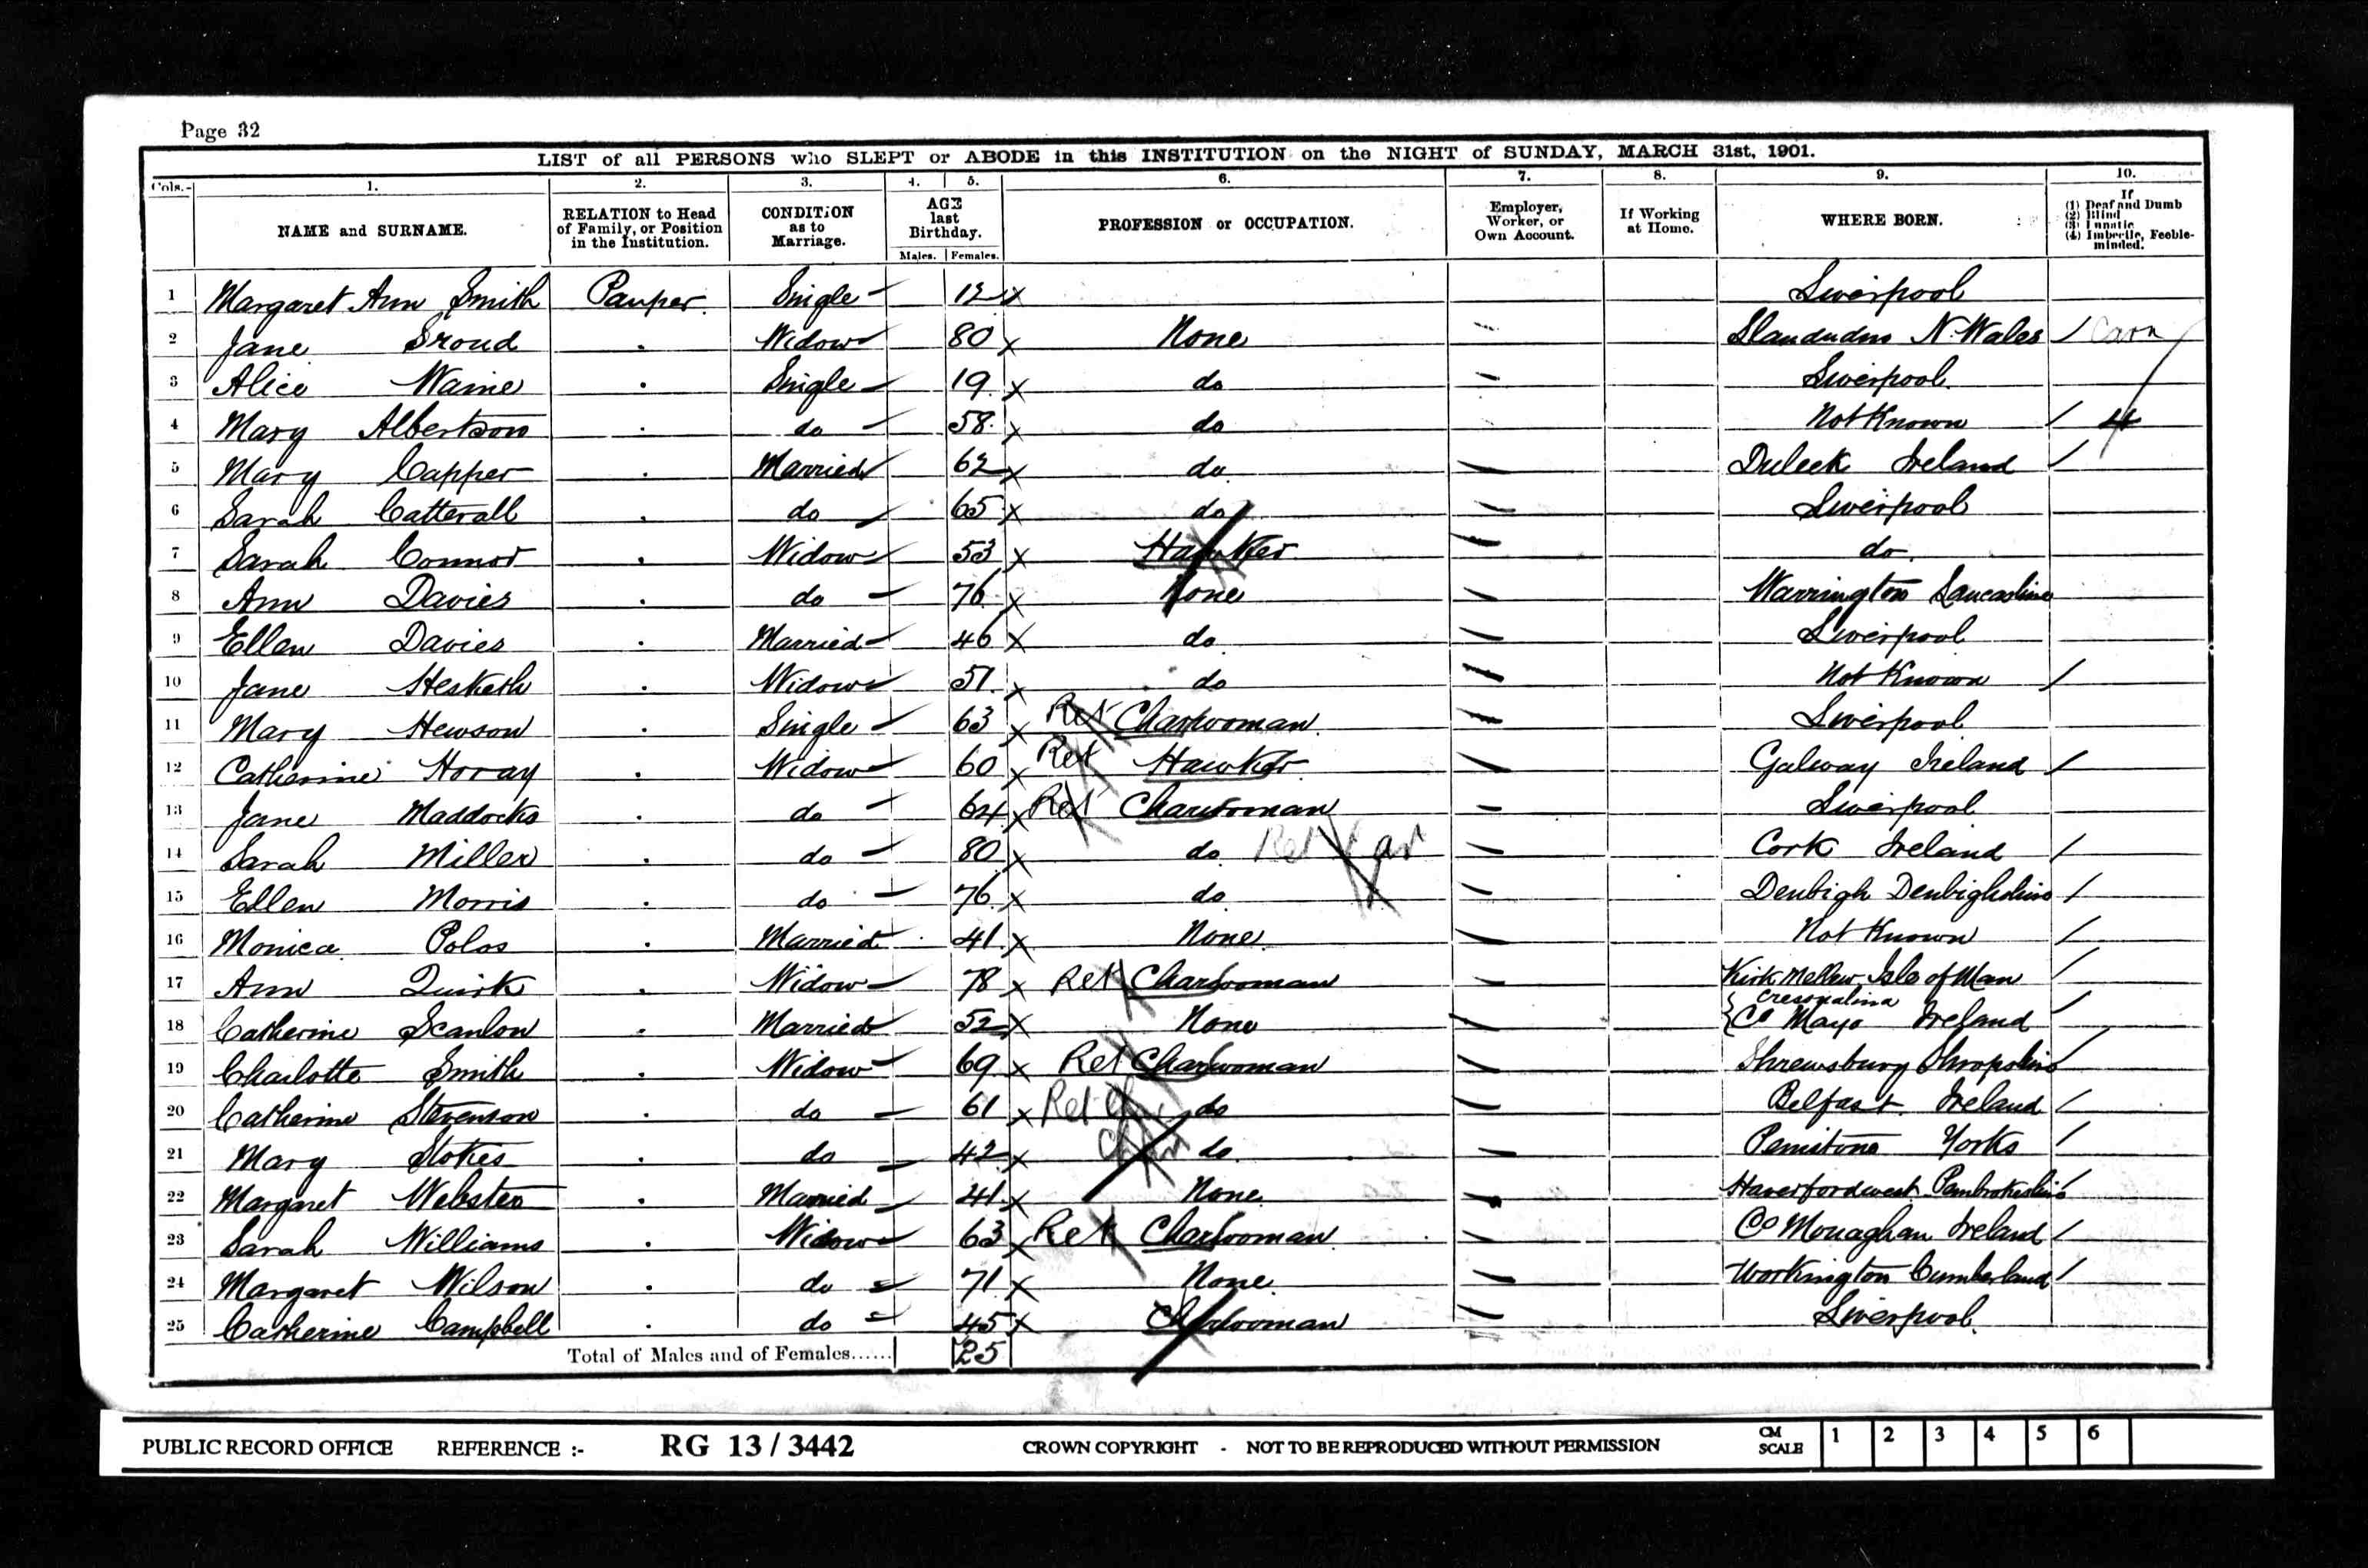 Page 32
LIST of all PERSONS who SLEPT or ABODE in this INSTITUTION on the NIGHT of SUNDAY, MARCH 31st, 1901.
Cols.- 1. 2. 3. 4. 5. 6. 7. 8. 9. 10.
NAME and SURNAME. RELATION to Head of Family, or Position in the Institution. CONDITION as to Marriage. AGE last Birthday. Males. Females. PROFESSION or OCCUPATION. Employer, Worker, or Own Account. If Working at Home. WHERE BORN. If (1) Deaf and Dumb (2) Blind (3) Lunatic (4) Imbecile, Feeble-minded.
1 Margaret Ann Smith Pauper Single 12 x Liverpool
2 Jane Widow 80 x None Llandudno N. Wales / Carn
3 Alice Waine Single 19 x do Liverpool
4 Mary Albertson do 58 x do Not Known / 4
5 Mary Capper Married 62 x do Duleek Ireland /
6 Sarah Catterall do 65 x do Liverpool
7 Sarah Connor Widow 53 x Hawker do
8 Ann Davies do 76 x None Warrington Lancashire
9 Ellen Davies Married 46 x do Liverpool
10 Jane Hesketh Widow 51 x do Not Known /
11 Mary Hewson Single 63 x Ret Charwoman Liverpool
12 Catherine Horay Widow 60 x Ret Hawker Galway Ireland /
13 Jane Maddocks do 64 x Ret Charwoman Liverpool
14 Sarah Miller do 80 x do Ret Cork Ireland /
15 Ellen Morris do 76 x do Denbigh Denbighshire /
16 Monica Polos Married 41 x None Not Known /
17 Ann Quirk Widow 78 x Ret Charwoman Kirk Isle of Man /
18 Catherine Scanlon Married 52 x None Co Mayo Ireland /
19 Charlotte Smith Widow 69 x Ret Charwoman Shrewsbury Shropshire /
20 Catherine Stevenson do 61 x Ret do Belfast Ireland /
21 Mary Stokes do 42 x do Penistone Yorks /
22 Margaret Webster Married 41 x None Haverfordwest Pembrokeshire /
23 Sarah Williams Widow 63 x Ret Charwoman Co Monaghan Ireland /
24 Margaret Wilson do 71 x None Workington Cumberland /
25 Catherine Campbell do 45 x Charwoman Liverpool
Total of Males and of Females...... 25
PUBLIC RECORD OFFICE REFERENCE :- RG 13 / 3442 CROWN COPYRIGHT - NOT TO BE REPRODUCED WITHOUT PERMISSION CM SCALE 1 2 3 4 5 6